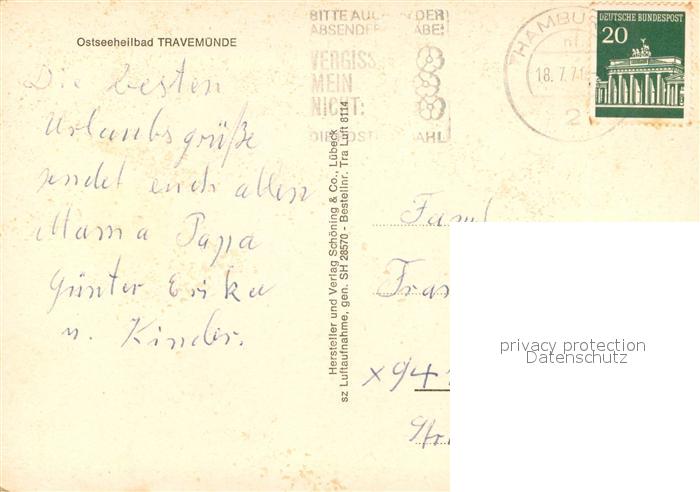 Ostseeheilbad TRAVEMÜNDE
Die besten
Urlaubsgrüße
sendet euch allen
Mama Papa
Günter Erika
u. Kinder.
Hersteller und Verlag Schöning & Co., Lübeck
sz Luftaufnahme, gen. SH 28570 - Bestellnr. Tra Luft 8114
BITTE AUCH DER
ABSENDER
VERGISS
MEIN
NICHT:
DIE POSTLEITZAHL
HAMBURG
18.7.71
2
DEUTSCHE BUNDESPOST
20
Faml
x 94
privacy protection
Datenschutz